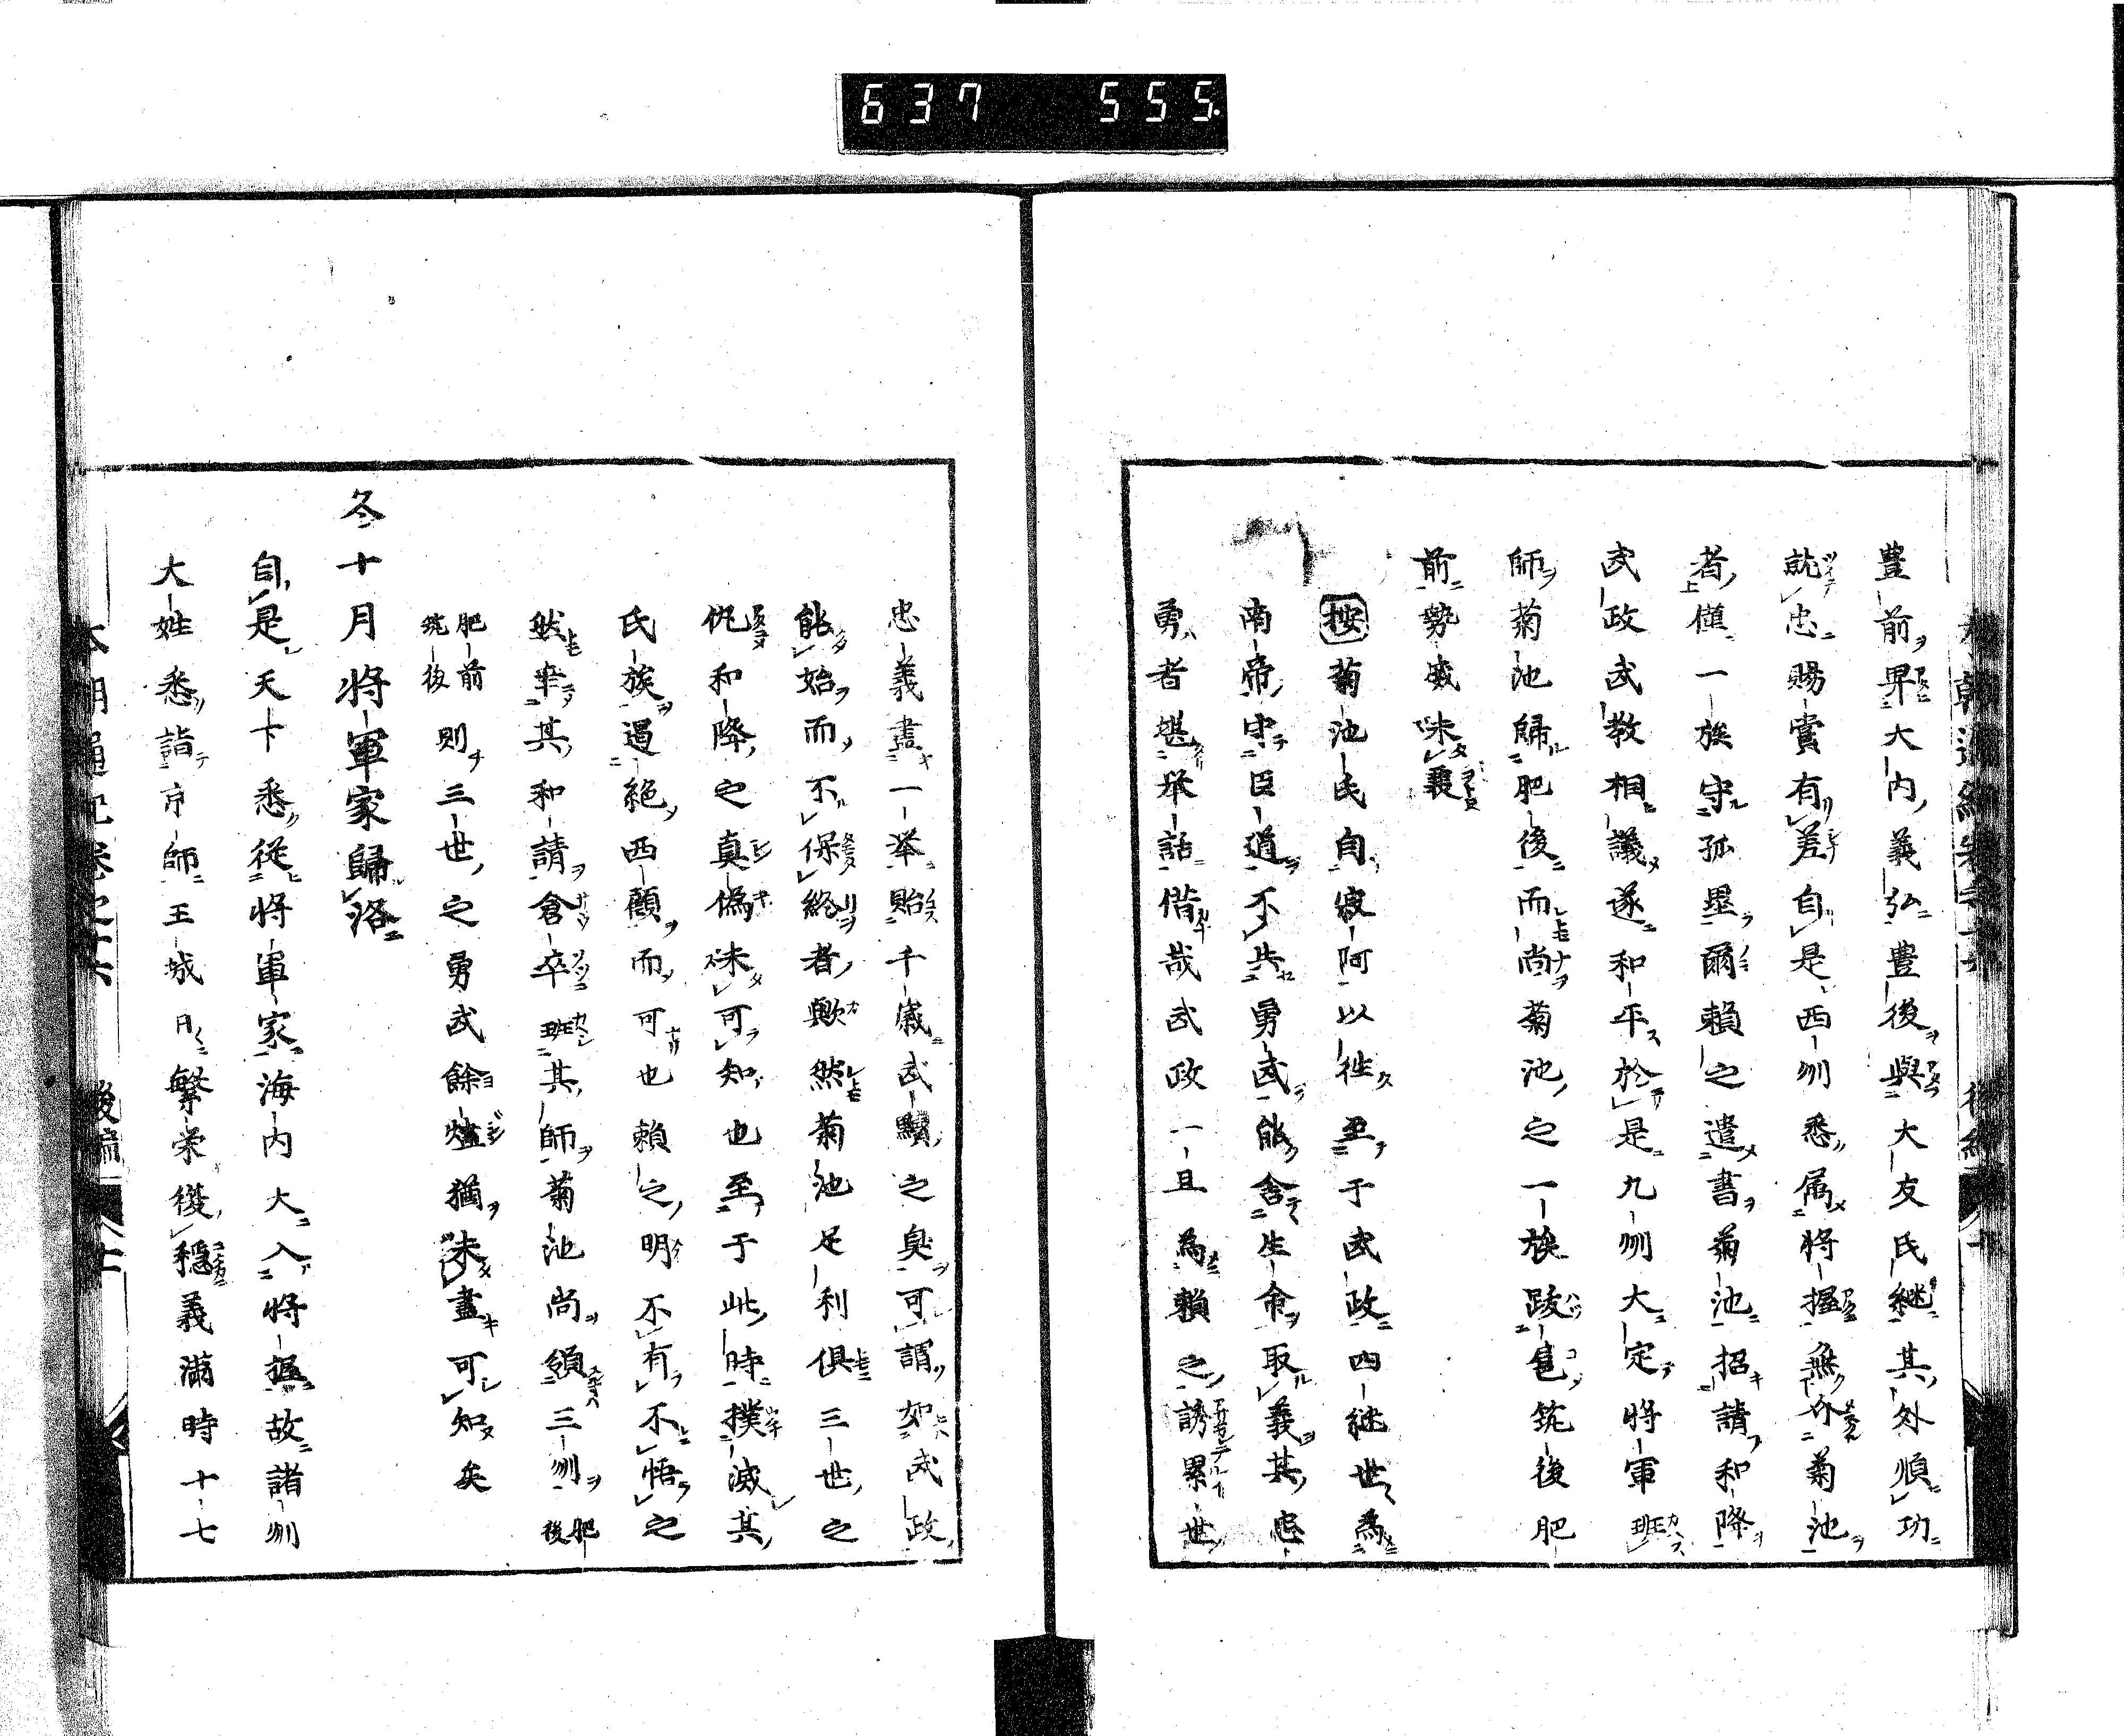 637 555.
豊前畀大内義弘豊後與大友氏継其外順功
就忠賜賞有差自是西州悉属將握無介菊池
者僅一族守孤壘爾頼之遣書菊池招請和降
武政武教相議遂和平於是九州大定將軍班
師菊池歸肥後而尚菊池之一族跋扈筑後肥
前勢威未衰
按菊池氏自寂阿以徃至于武政四継世為
南帝守臣道不共勇武能舎生命取義其忠
勇者堪举話偕哉武政一旦為頼之誘累世
忠義盡一举貽千歳武黷之臭可謂如武政
能始而不保終者歟然菊池足利倶三世之
仇和降之真偽未可知也至于此時撲滅其
氏族遏絶西顧而可也頼之明不有不悟之
然率其和請倉卒班其師菊池尚領三州肥後
肥前筑後則三世之勇武餘燼猶未盡可知矣
冬十月將軍家歸洛
自是天下悉従將軍家海内大入將握故諸州
大姓悉詣京師王城日繁栄従穏義滿時十七
本朝通紀巻之十六 後編